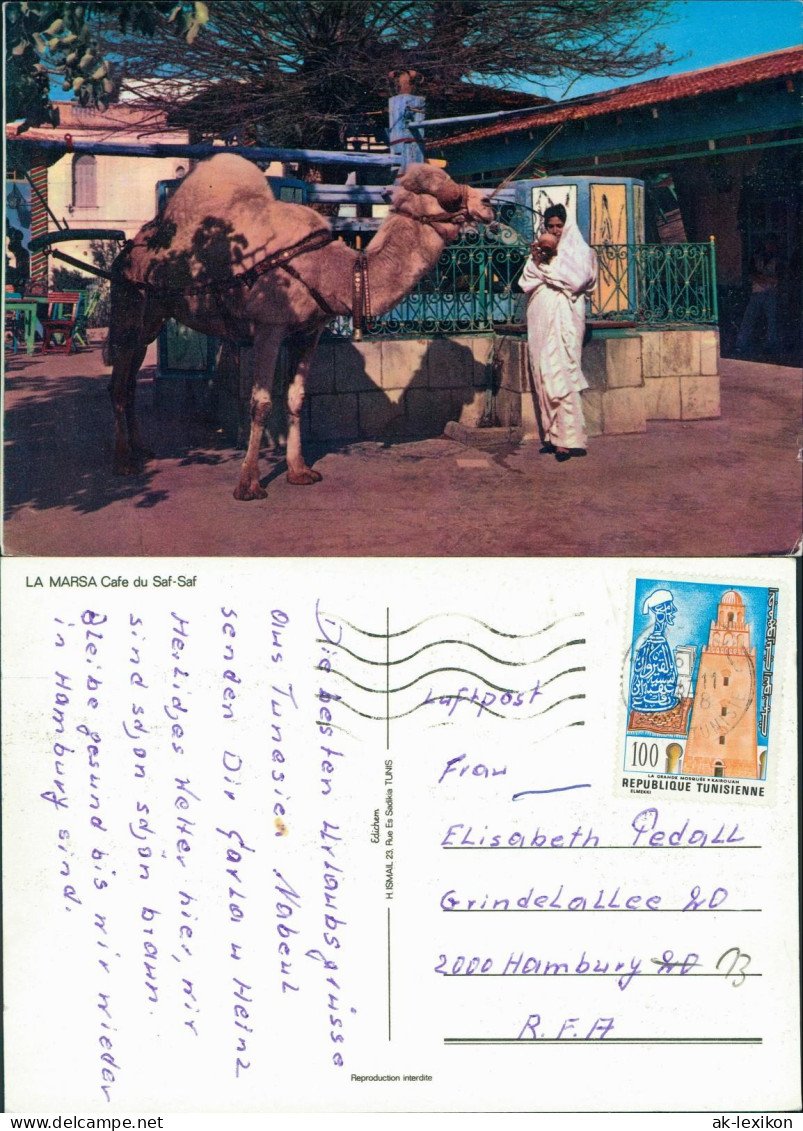 LA MARSA Cafe du Saf-Saf
Die besten Urlaubsgrüsse
aus Tunesien Nabeul
senden Dir Carla u Heinz
Heißes Wetter hier, wir
sind schon schön braun.
Bleibe gesund bis wir wieder
in Hamburg sind.
Edichem
H. ISMAIL 23, Rue Es Sadikia TUNIS
Reproduction interdite
100
LA GRANDE MOSQUÉE • KAIROUAN
ELMEKKI
REPUBLIQUE TUNISIENNE
الجمهورية التونسية
Luftpost
Frau
Elisabeth Pedall
Grindelallee 20
2000 Hamburg 20 13
R.F.A
ak-lexikon
ak-lexikon.com